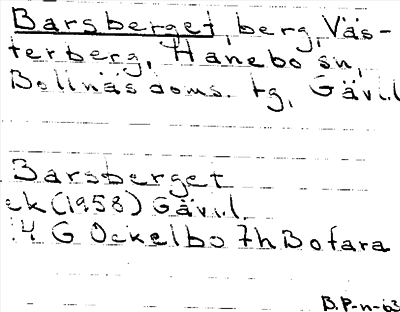 Barsberget, berg, Väs-
terberg, Hanebo sn,
Bollnäs doms. tg, Gävl.
Barsberget
ek (1958) Gävl.
14 G Ockelbo 7h Bofara
B.P-n-63